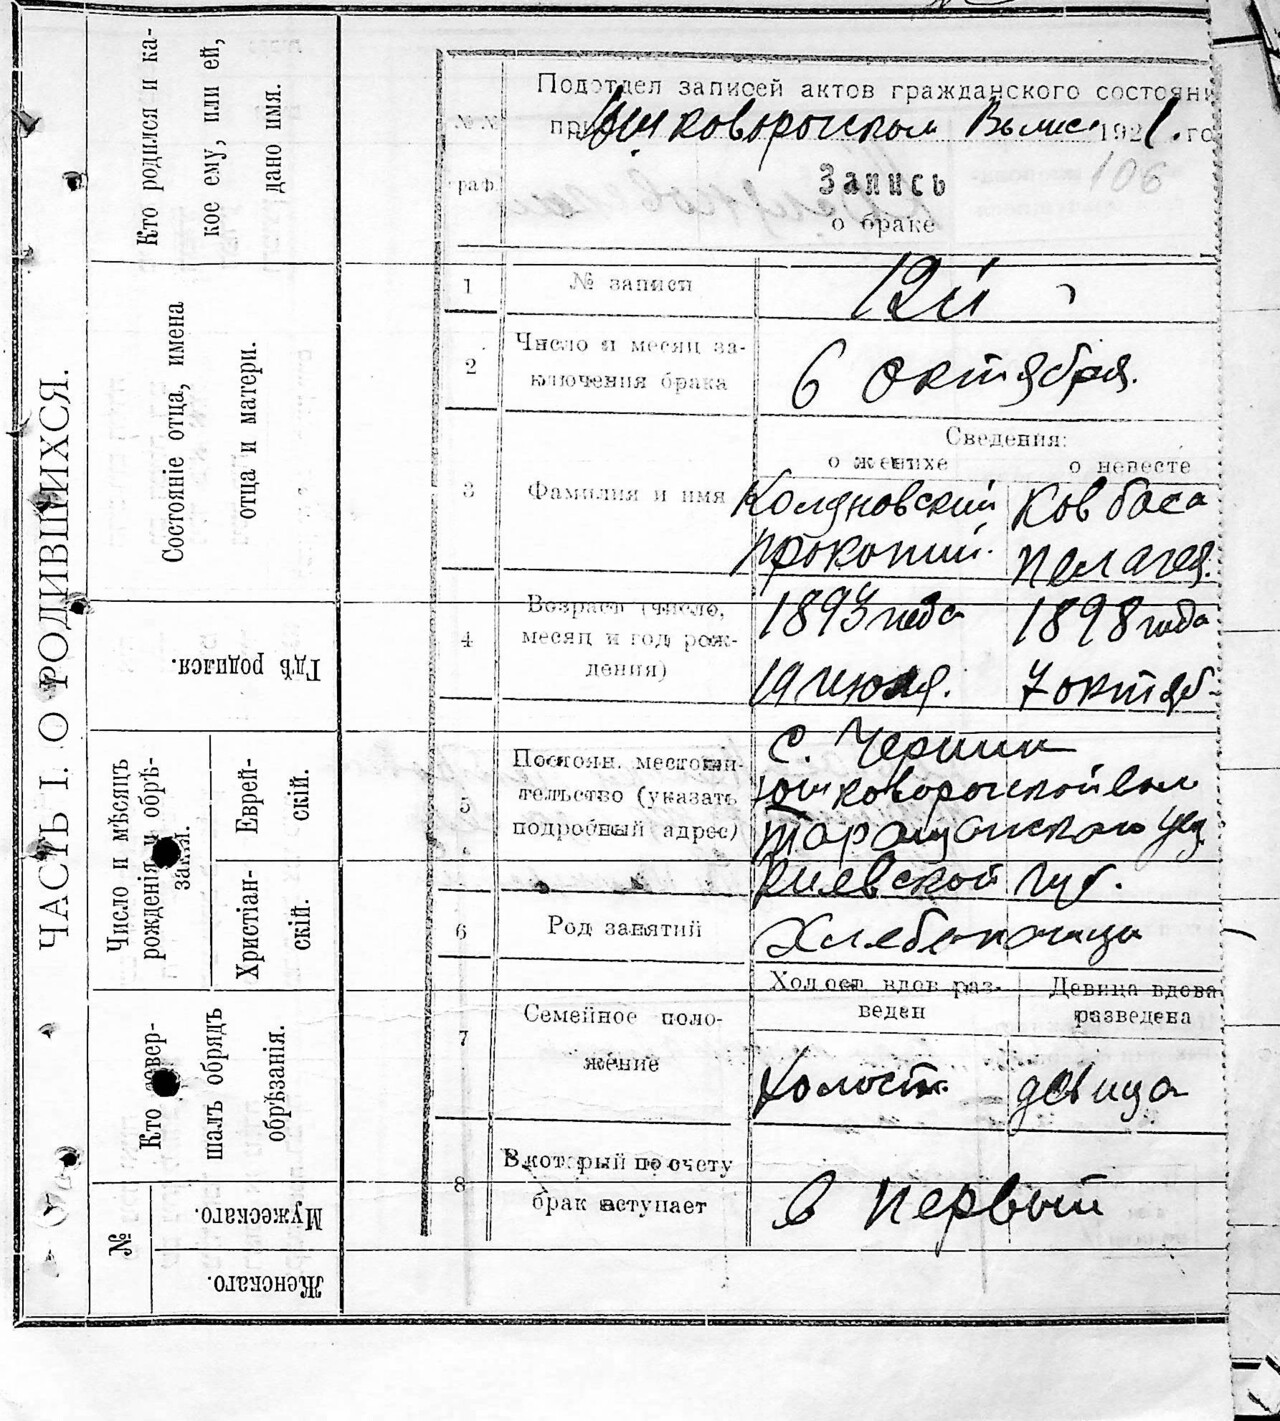 ЧАСТЬ I. О РОДИВШИХСЯ.
Кто родился и ка-
кое ему, или ей,
дано имя.
Состояніе отца, имена
отца и матери.
Гдѣ родился.
Число и мѣсяцъ
рожденія и обрѣ-
занія.
Еврей-
скій.
Христіан-
скій.
Кто совер-
шалъ обрядъ
обрѣзанія.
№
Мужескаго.
Женскаго.
Подотдел записей актов гражданского состояни
при Юшковорогском 192 1. го
№.№
раф
Запись
о браке
106
1 № записи 12й
2 Число и месяц за-
ключения брака
6 октября.
Сведения:
о женихе о невесте
3 Фамилия и имя
Колдновский Ковбаса
Прокопий. Пелагея.
4 Возраст (число,
месяц и год рож-
дения)
1893 года 1898 года
19 июля. 7 октяб-
5 Постоян. местожи-
тельство (указать
подробный адрес)
с.
Юшковорогской вол
Таращанского уез
Киевской губ.
6 Род занятий
Хлебопашцы
7 Семейное поло-
жение
Холост вдов раз-
веден
Девица вдова
разведена
Холост девица
8 В который по счету
брак вступает
в первый